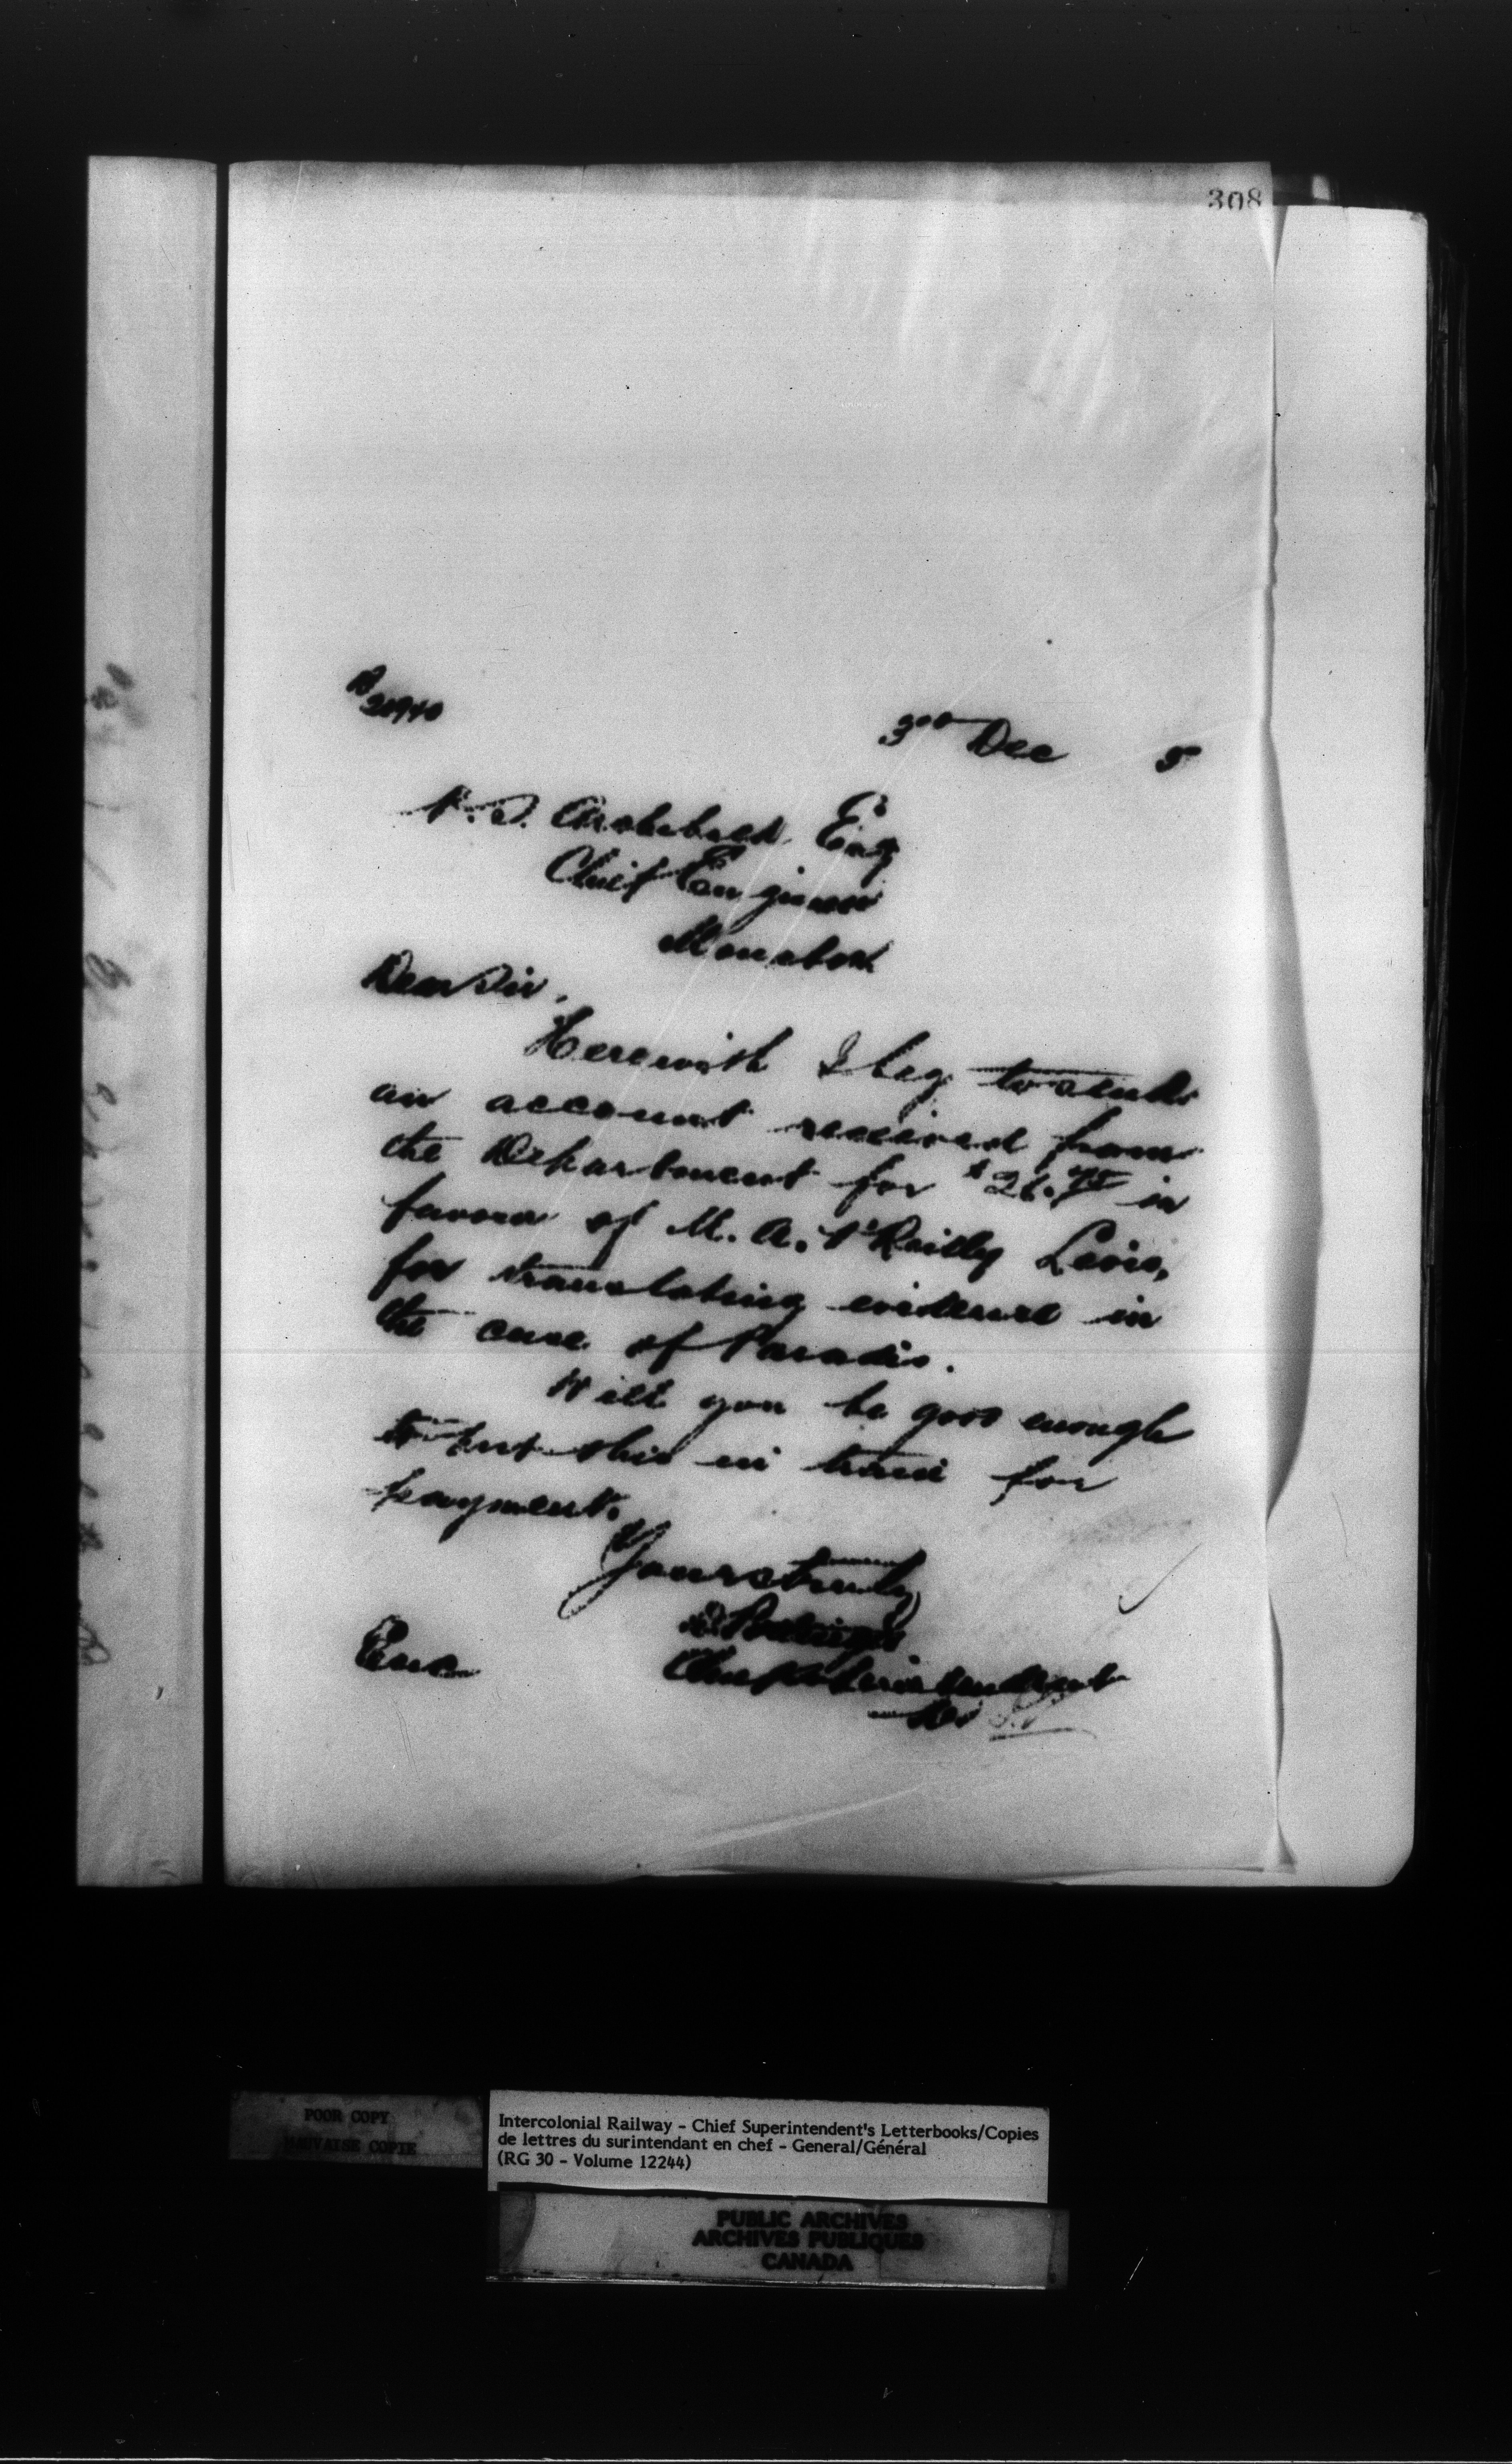 308
3rd Dec 5
P.S. Archibald Esq
Chief Engineer
Moncton
Dear Sir,
Herewith I beg to send
an account received from
the Department for $26.75 in
favour of M. A. O'Reilly Levis,
for translating evidence in
the case of Paradis.
Will you be good enough
to put this in train for
payment.
Yours truly
D. Pottinger
Chief Superintendent
Enc
POOR COPY
MAUVAISE COPIE
Intercolonial Railway - Chief Superintendent's Letterbooks/Copies
de lettres du surintendant en chef - General/Général
(RG 30 - Volume 12244)
PUBLIC ARCHIVES
ARCHIVES PUBLIQUES
CANADA